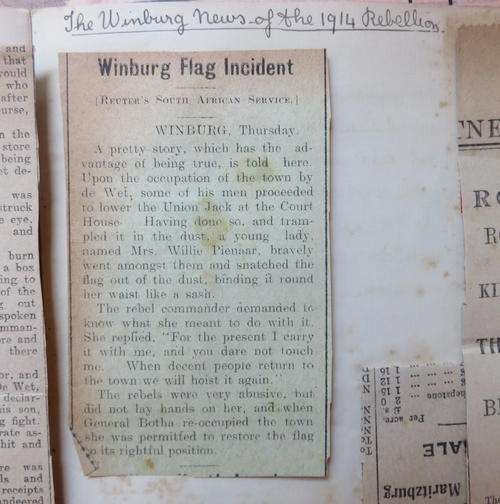 The Winburg News of the 1914 Rebellion.
Winburg Flag Incident
[REUTER'S SOUTH AFRICAN SERVICE.]
WINBURG, Thursday.
A pretty story, which has the ad-
vantage of being true, is told here.
Upon the occupation of the town by
de Wet, some of his men proceeded
to lower the Union Jack at the Court
House. Having done so, and tram-
pled it in the dust, a young lady,
named Mrs. Willie Pienaar, bravely
went amongst them and snatched the
flag out of the dust, binding it round
her waist like a sash.
The rebel commander demanded to
know what she meant to do with it.
She replied, "For the present I carry
it with me, and you dare not touch
me. When decent people return to
the town we will hoist it again."
The rebels were very abusive, but
did not lay hands on her, and when
General Botha re-occupied the town
she was permitted to restore the flag
to its rightful position.
and
that
would
who
after
ourse,
n the
store
being
et de-
was
struck
e eye,
and
burn
a box
ing to
of the
g out
spoken
mman-
ore and
there
or, and
De Wet,
declar-
his son,
g fight.
rate as-
hit and
re was
ls and
receipts
andeered
TNE
RO
RO
KI
TH
B
Per acre.
£ s. d.
Maritzburg
ALE